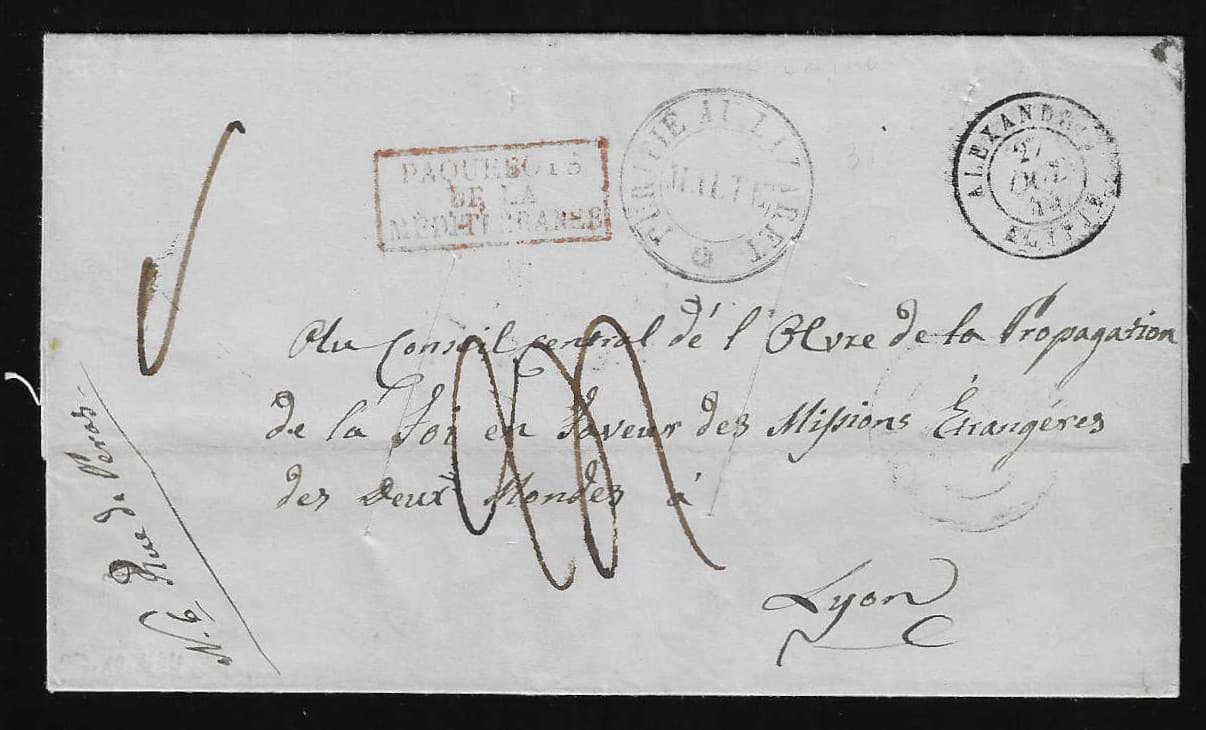 PAQUEBOTS
DE LA
MÉDITERRANÉE
PURIFIÉ AU LAZARET
MALTE
ALEXANDRIE
27
OCT.
ÉGYPTE
Au Conseil central dé l'Olvre de la Propagation
de la Foi en Faveur des Missions Étrangéres
des deux Mondes à
Lyon
N. 6 Rue de Peras